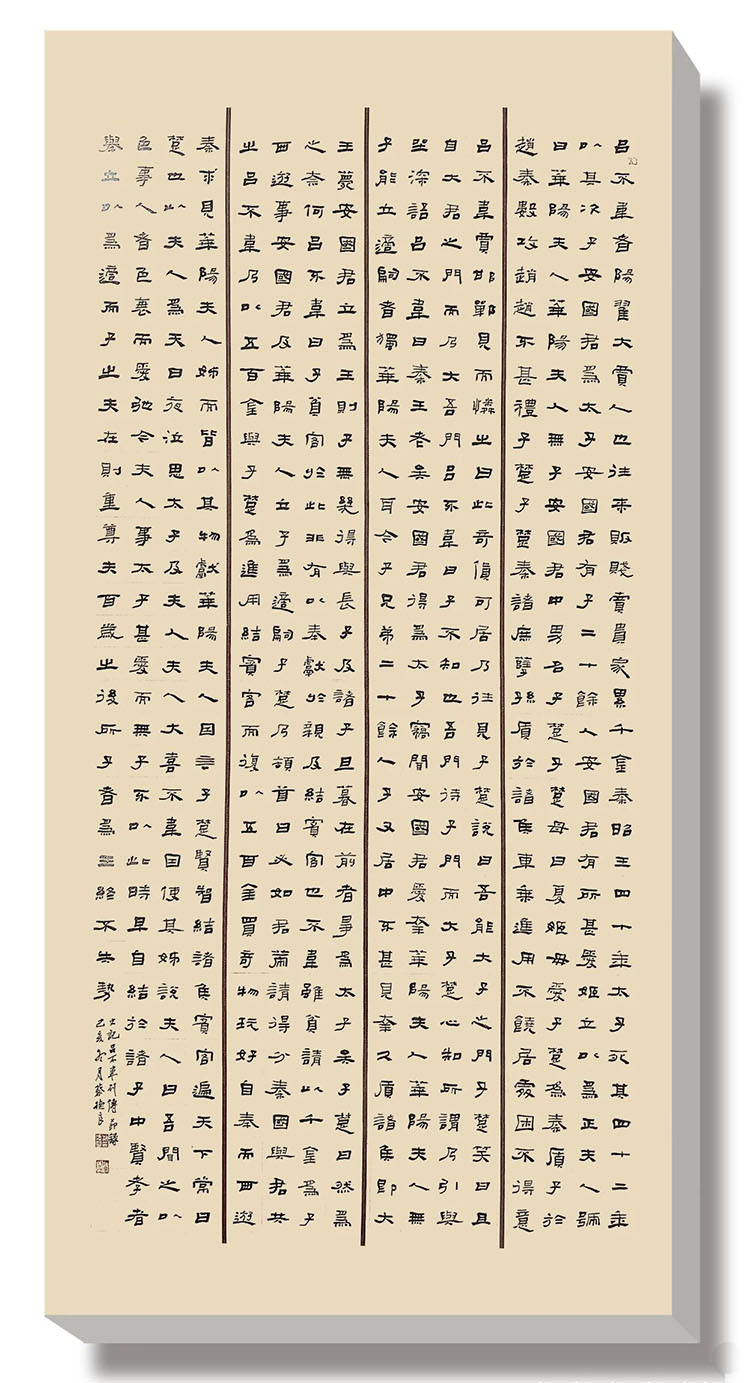 吕不韋者陽翟大賈人也往來販賤賣貴家累千金秦昭王四十年太子死其四十二年
以其次子安國君為太子安國君有子二十餘人安國君有所甚愛姬立以為正夫人號
曰華陽夫人華陽夫人無子安國君中男名子楚子楚母曰夏姬毋愛子楚為秦質子於
趙秦數攻趙趙不甚禮子楚子楚秦諸庶孽孫質於諸侯車乘進用不饒居處困不得意
吕不韋賈邯鄲見而憐之曰此奇貨可居乃往見子楚說曰吾能大子之門子楚笑曰且
自大君之門而乃大吾門吕不韋曰子不知也吾門待子門而大子楚心知所謂乃引與
坐深語吕不韋曰秦王老矣安國君得為太子竊聞安國君愛幸華陽夫人華陽夫人無
子能立適嗣者獨華陽夫人耳今子兄弟二十餘人子又居中不甚見幸久質諸侯即大
王薨安國君立為王則子無幾得與長子及諸子旦暮在前者爭為太子矣子楚曰然為
之奈何吕不韋曰子貧客於此非有以奉獻於親及結賓客也不韋雖貧請以千金為子
西遊事安國君及華陽夫人立子為適嗣子楚乃頓首曰必如君策請得分秦國與君共
之吕不韋乃以五百金與子楚為進用結賓客而復以五百金買奇物玩好自奉而西遊
秦求見華陽夫人姊而皆以其物獻華陽夫人因言子楚賢智結諸侯賓客遍天下常曰
楚也以夫人為天日夜泣思太子及夫人夫人大喜不韋因使其姊說夫人曰吾聞之以
色事人者色衰而愛弛今夫人事太子甚愛而無子不以此時早自結於諸子中賢孝者
舉立以為適而子之夫在則重尊夫百歲之後所子者為王終不失勢
史記吕不韋列傳節錄
己亥冬月蔡德良